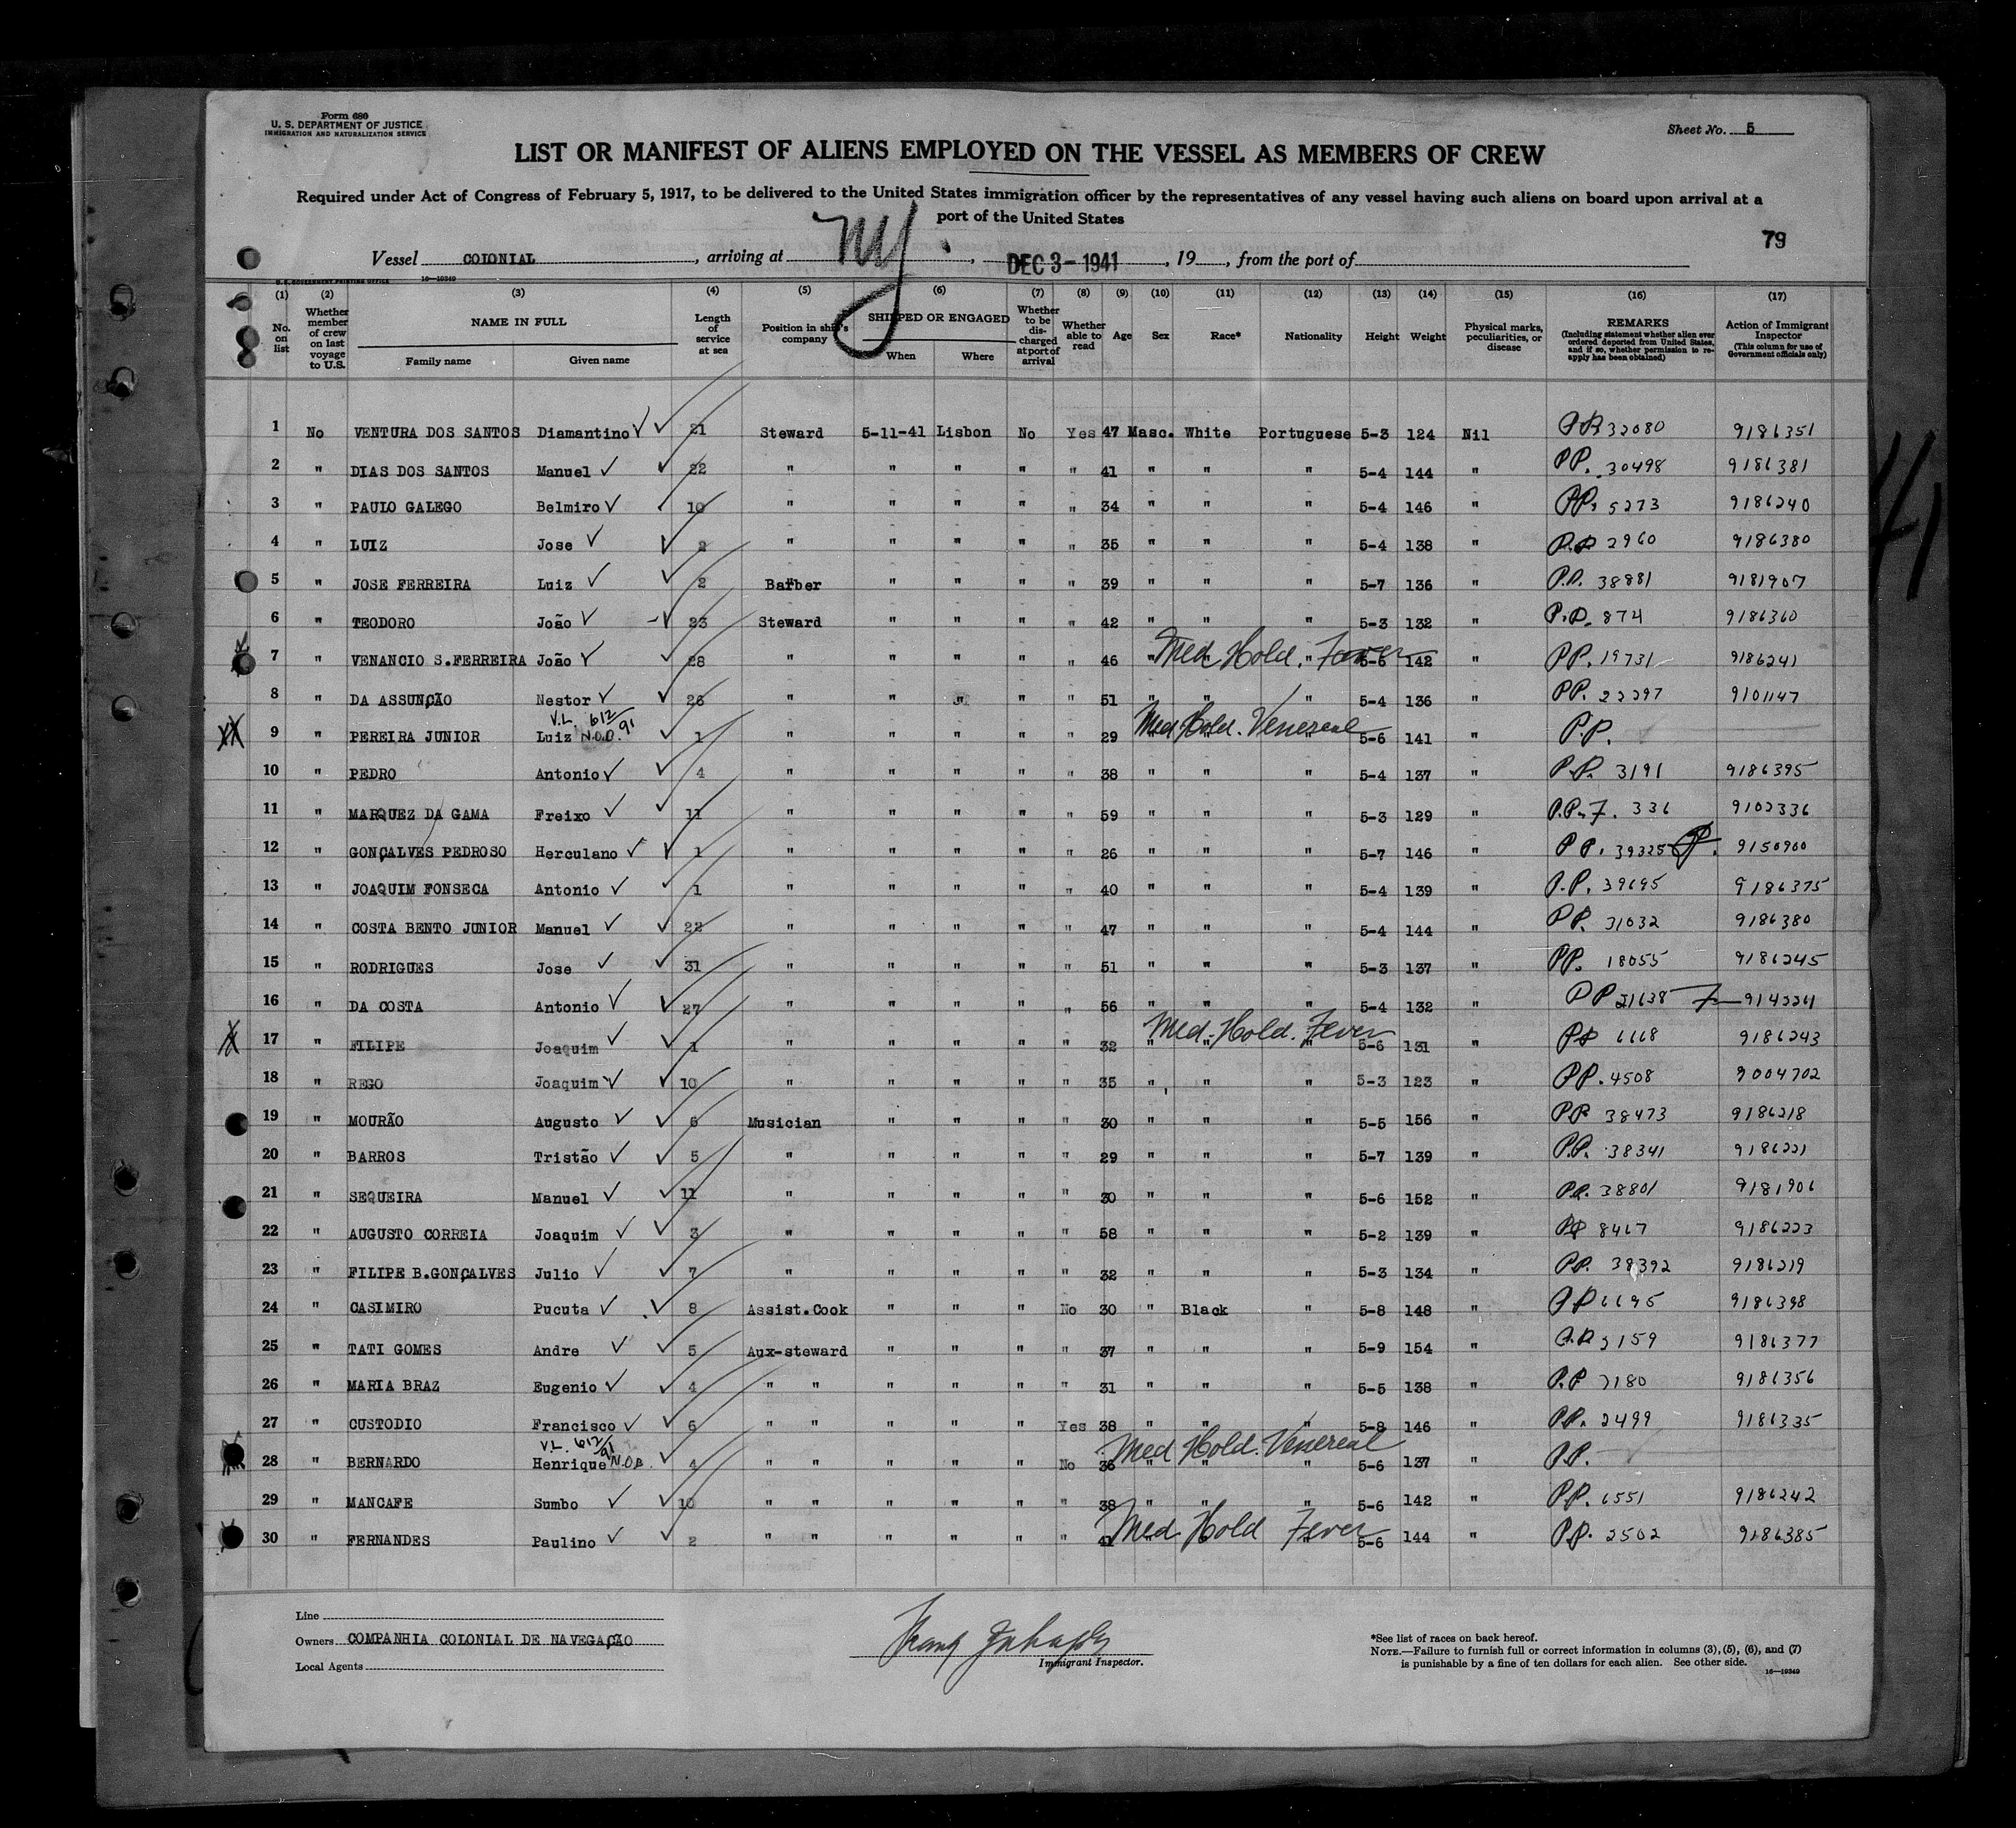 Form 680
U. S. DEPARTMENT OF JUSTICE
IMMIGRATION AND NATURALIZATION SERVICE
Sheet No. 5
LIST OR MANIFEST OF ALIENS EMPLOYED ON THE VESSEL AS MEMBERS OF CREW
Required under Act of Congress of February 5, 1917, to be delivered to the United States immigration officer by the representatives of any vessel having such aliens on board upon arrival at a
port of the United States
79
Vessel COLONIAL, arriving at NY., DEC 3-1941, 19, from the port of
U.S. GOVERNMENT PRINTING OFFICE 16-19349
(1) (2) (3) (4) (5) (6) (7) (8) (9) (10) (11) (12) (13) (14) (15) (16) (17)
No. on list Whether member of crew on last voyage to U.S. NAME IN FULL Family name Given name Length of service at sea Position in ship's company SHIPPED OR ENGAGED When Where Whether to be discharged at port of arrival Whether able to read Age Sex Race* Nationality Height Weight Physical marks, peculiarities, or disease REMARKS (Including statement whether alien ever ordered deported from United States, and if so, whether permission to reapply has been obtained) Action of Immigrant Inspector (This column for use of Government officials only)
1 No VENTURA DOS SANTOS Diamantino 21 Steward 5-11-41 Lisbon No Yes 47 Masc. White Portuguese 5-3 124 Nil P.P. 32080 9186351
2 " DIAS DOS SANTOS Manuel 22 " " " " " 41 " " " 5-4 144 " PP. 30498 9186381
3 " PAULO GALEGO Belmiro 10 " " " " " 34 " " " 5-4 146 " PP. 5273 9186240
4 " LUIZ Jose 2 " " " " " 35 " " " 5-4 138 " P.P 2960 9186380
5 " JOSE FERREIRA Luiz 2 Barber " " " " 39 " " " 5-7 136 " P.P. 38881 9181907
6 " TEODORO João 23 Steward " " " " 42 " " " 5-3 132 " P.P. 874 9186360
7 " VENANCIO S.FERREIRA João 28 " " " " " 46 " " " Med Hold. Fever 5-5 142 " PP. 19731 9186241
8 " DA ASSUNÇÃO Nestor 26 " " " " " 51 " " " 5-4 136 " PP. 22297 9101147
XX 9 " PEREIRA JUNIOR Luiz V.L. 612/91 N.O.B. 1 " " " " " 29 Med. Hold. Venereal 5-6 141 " P.P.
10 " PEDRO Antonio 4 " " " " " 38 " " " 5-4 137 " P.P. 3191 9186395
11 " MARQUEZ DA GAMA Freixo 11 " " " " " 59 " " " 5-3 129 " P.P. 7. 336 9102336
12 " GONÇALVES PEDROSO Herculano 1 " " " " " 26 " " " 5-7 146 " PP. 39325 9150900
13 " JOAQUIM FONSECA Antonio 1 " " " " " 40 " " " 5-4 139 " P.P. 39695 9186375
14 " COSTA BENTO JUNIOR Manuel 22 " " " " " 47 " " " 5-4 144 " PP. 31032 9186380
15 " RODRIGUES Jose 31 " " " " " 51 " " " 5-3 137 " PP. 18055 9186245
16 " DA COSTA Antonio 27 " " " " " 56 " " " 5-4 132 " PP 21638
X 17 " FILIPE Joaquim 1 " " " " " 32 " " " Med. Hold. Fever 5-6 131 " PP 6668 9186243
18 " REGO Joaquim 10 " " " " " 35 " " " 5-3 123 " PP. 4508 9004702
19 " MOURÃO Augusto 6 Musician " " " " 30 " " " 5-5 156 " PP 38473 9186218
20 " BARROS Tristão 5 " " " " " 29 " " " 5-7 139 " P.P. 38341 9186221
21 " SEQUEIRA Manuel 11 " " " " " 30 " " " 5-6 152 " PP. 38801 9181906
22 " AUGUSTO CORREIA Joaquim 3 " " " " " 58 " " " 5-2 139 " PP 8467 9186223
23 " FILIPE B.GONÇALVES Julio 7 " " " " " 32 " " " 5-3 134 " PP. 38392 9186219
24 " CASIMIRO Pucuta 8 Assist.Cook " " " No 30 " Black " 5-8 148 " PP 6695 9186398
25 " TATI GOMES Andre 5 Aux-steward " " " " 37 " " " 5-9 154 " P.P. 3159 9186377
26 " MARIA BRAZ Eugenio 4 " " " " " " 31 " " " 5-5 138 " P.P 7180 9186356
27 " CUSTODIO Francisco 6 " " " " " Yes 38 " " " 5-8 146 " PP. 2499 9186335
28 " BERNARDO Henrique V.L. 612/91 N.O.B. 4 " " " " " No 36 " " " Med Hold. Venereal 5-6 137 " P.P.
29 " MANCAFE Sumbo 10 " " " " " " 38 " " " 5-6 142 " PP. 6551 9186242
30 " FERNANDES Paulino 2 " " " " " " 41 Med Hold Fever 5-6 144 " PP. 2502 9186385
Line
Owners COMPANHIA COLONIAL DE NAVEGAÇÃO
Local Agents
Immigrant Inspector.
*See list of races on back hereof.
NOTE.—Failure to furnish full or correct information in columns (3), (5), (6), and (7)
is punishable by a fine of ten dollars for each alien. See other side.
16-19349